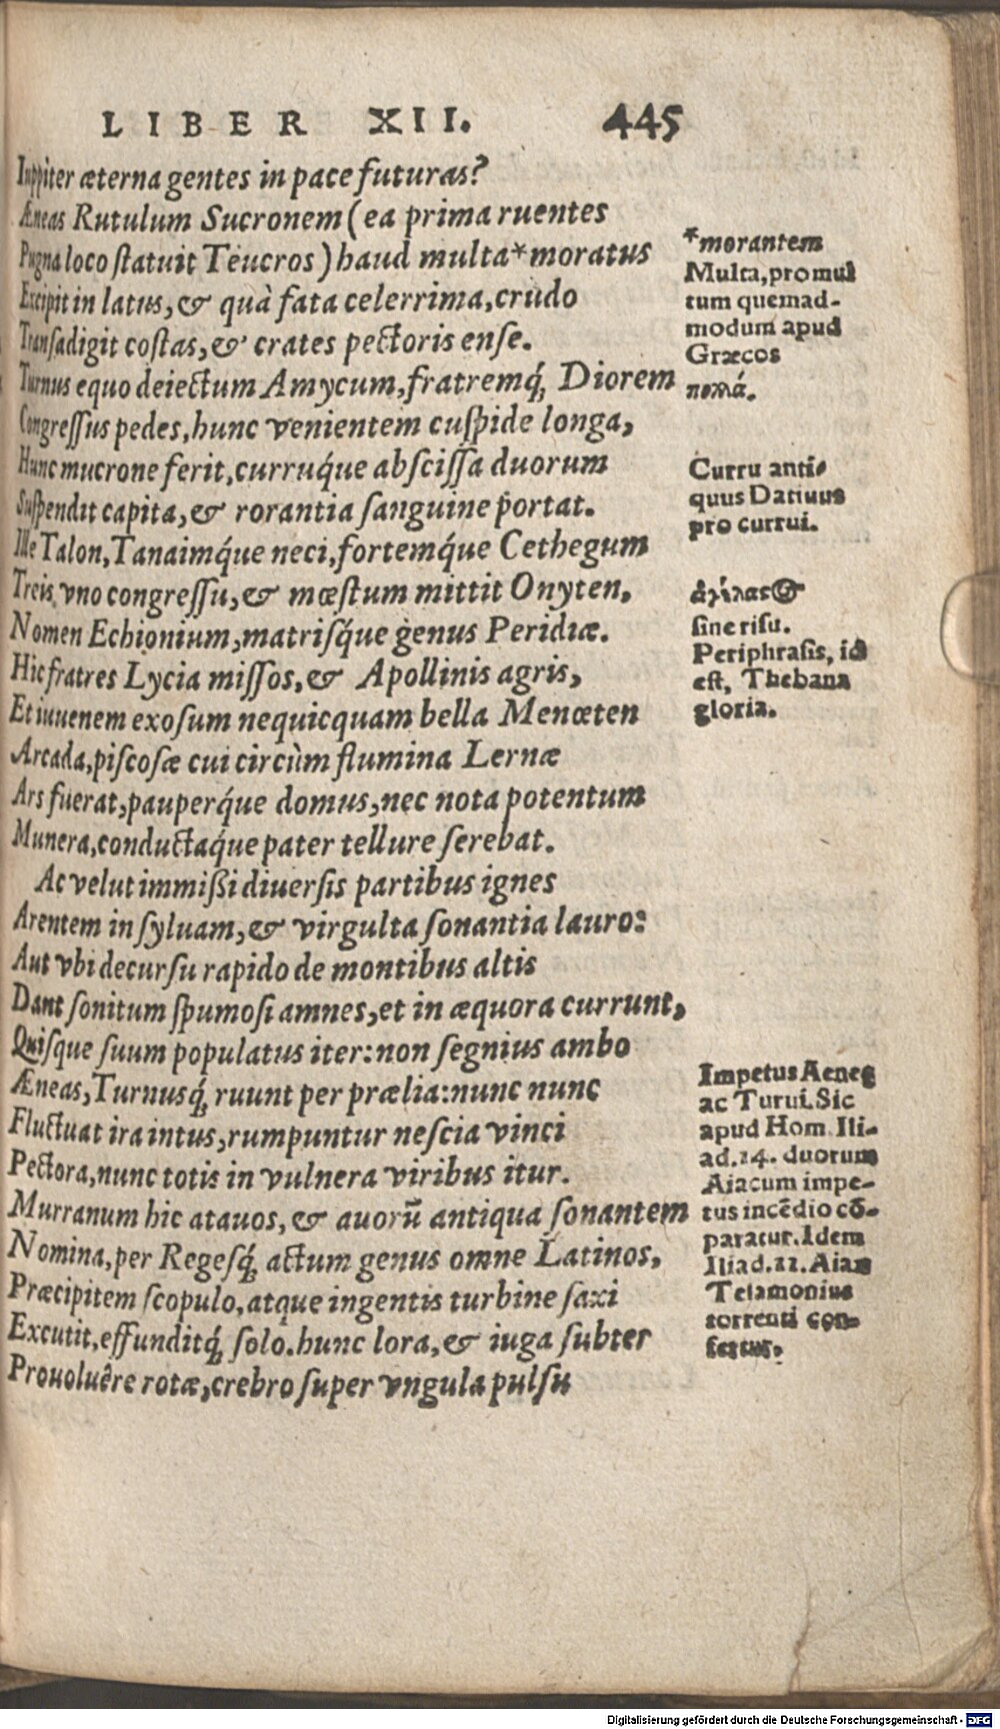 LIBER XII. 445
Iuppiter æterna gentes in pace futuras?
Æneas Rutulum Sucronem (ea prima ruentes
Pugna loco statuit Teucros) haud multa*moratus
Excipit in latus, & quà fata celerrima, crudo
Transadigit costas, & crates pectoris ense.
Turnus equo deiectum Amycum, fratremq́; Diorem
Congressus pedes, hunc venientem cuspide longa,
Hunc mucrone ferit, curruq́ue abscissa duorum
Suspendit capita, & rorantia sanguine portat.
Ille Talon, Tanaimq́ue neci, fortemq́ue Cethegum
Treis vno congressu, & mœstum mittit Onyten,
Nomen Echionium, matrisq́ue genus Peridiæ.
Hic fratres Lycia missos, & Apollinis agris,
Et iuuenem exosum nequicquam bella Menœten
Arcada, piscosæ cui circùm flumina Lernæ
Ars fuerat, pauperq́ue domus, nec nota potentum
Munera, conductaq́ue pater tellure serebat.
Ac velut immißi diuersis partibus ignes
Arentem in syluam, & virgulta sonantia lauro:
Aut vbi decursu rapido de montibus altis
Dant sonitum spumosi amnes, et in æquora currunt,
Quisque suum populatus iter: non segnius ambo
Æneas, Turnusq́; ruunt per prælia: nunc nunc
Fluctuat ira intus, rumpuntur nescia vinci
Pectora, nunc totis in vulnera viribus itur.
Murranum hic atauos, & auorũ antiqua sonantem
Nomina, per Regesq́; actum genus omne Latinos,
Præcipitem scopulo, atque ingentis turbine saxi
Excutit, effunditq́; solo. hunc lora, & iuga subter
Prouoluêre rotæ, crebro super vngula pulsu
*morantem
Multa, pro mul
tum quemad-
modum apud
Græcos
πολλά.
Curru anti-
quus Datiuus
pro currui.
ἀγέλαστος
sine risu.
Periphrasis, id
est, Thebana
gloria.
Impetus Aeneę
ac Turni. Sic
apud Hom. Ili-
ad. 14. duorum
Aiacum impe-
tus incẽdio cõ-
paratur. Idem
Iliad. 11. Aiax
Telamonius
torrenti con-
fertur.
Digitalisierung gefördert durch die Deutsche Forschungsgemeinschaft - DFG